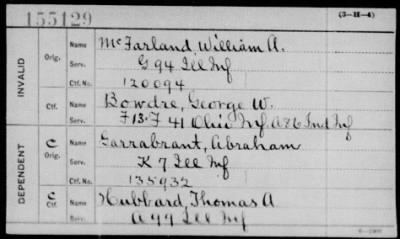 155129
(3-H-4)
INVALID
Orig.
Name McFarland, William A.
Serv. G 94 Ill Inf
Ctf. No. 120094
Ctf.
Name Bowdre, George W.
Serv. F 13. F 41 Ohio Inf. A 86 Ind Inf
DEPENDENT
C
Orig.
Name Garrabrant, Abraham
Serv. K 7 Ill Inf
Ctf. No. 135932
C
Ctf.
Name Hubbard, Thomas A
Serv. A 77 Ill Inf